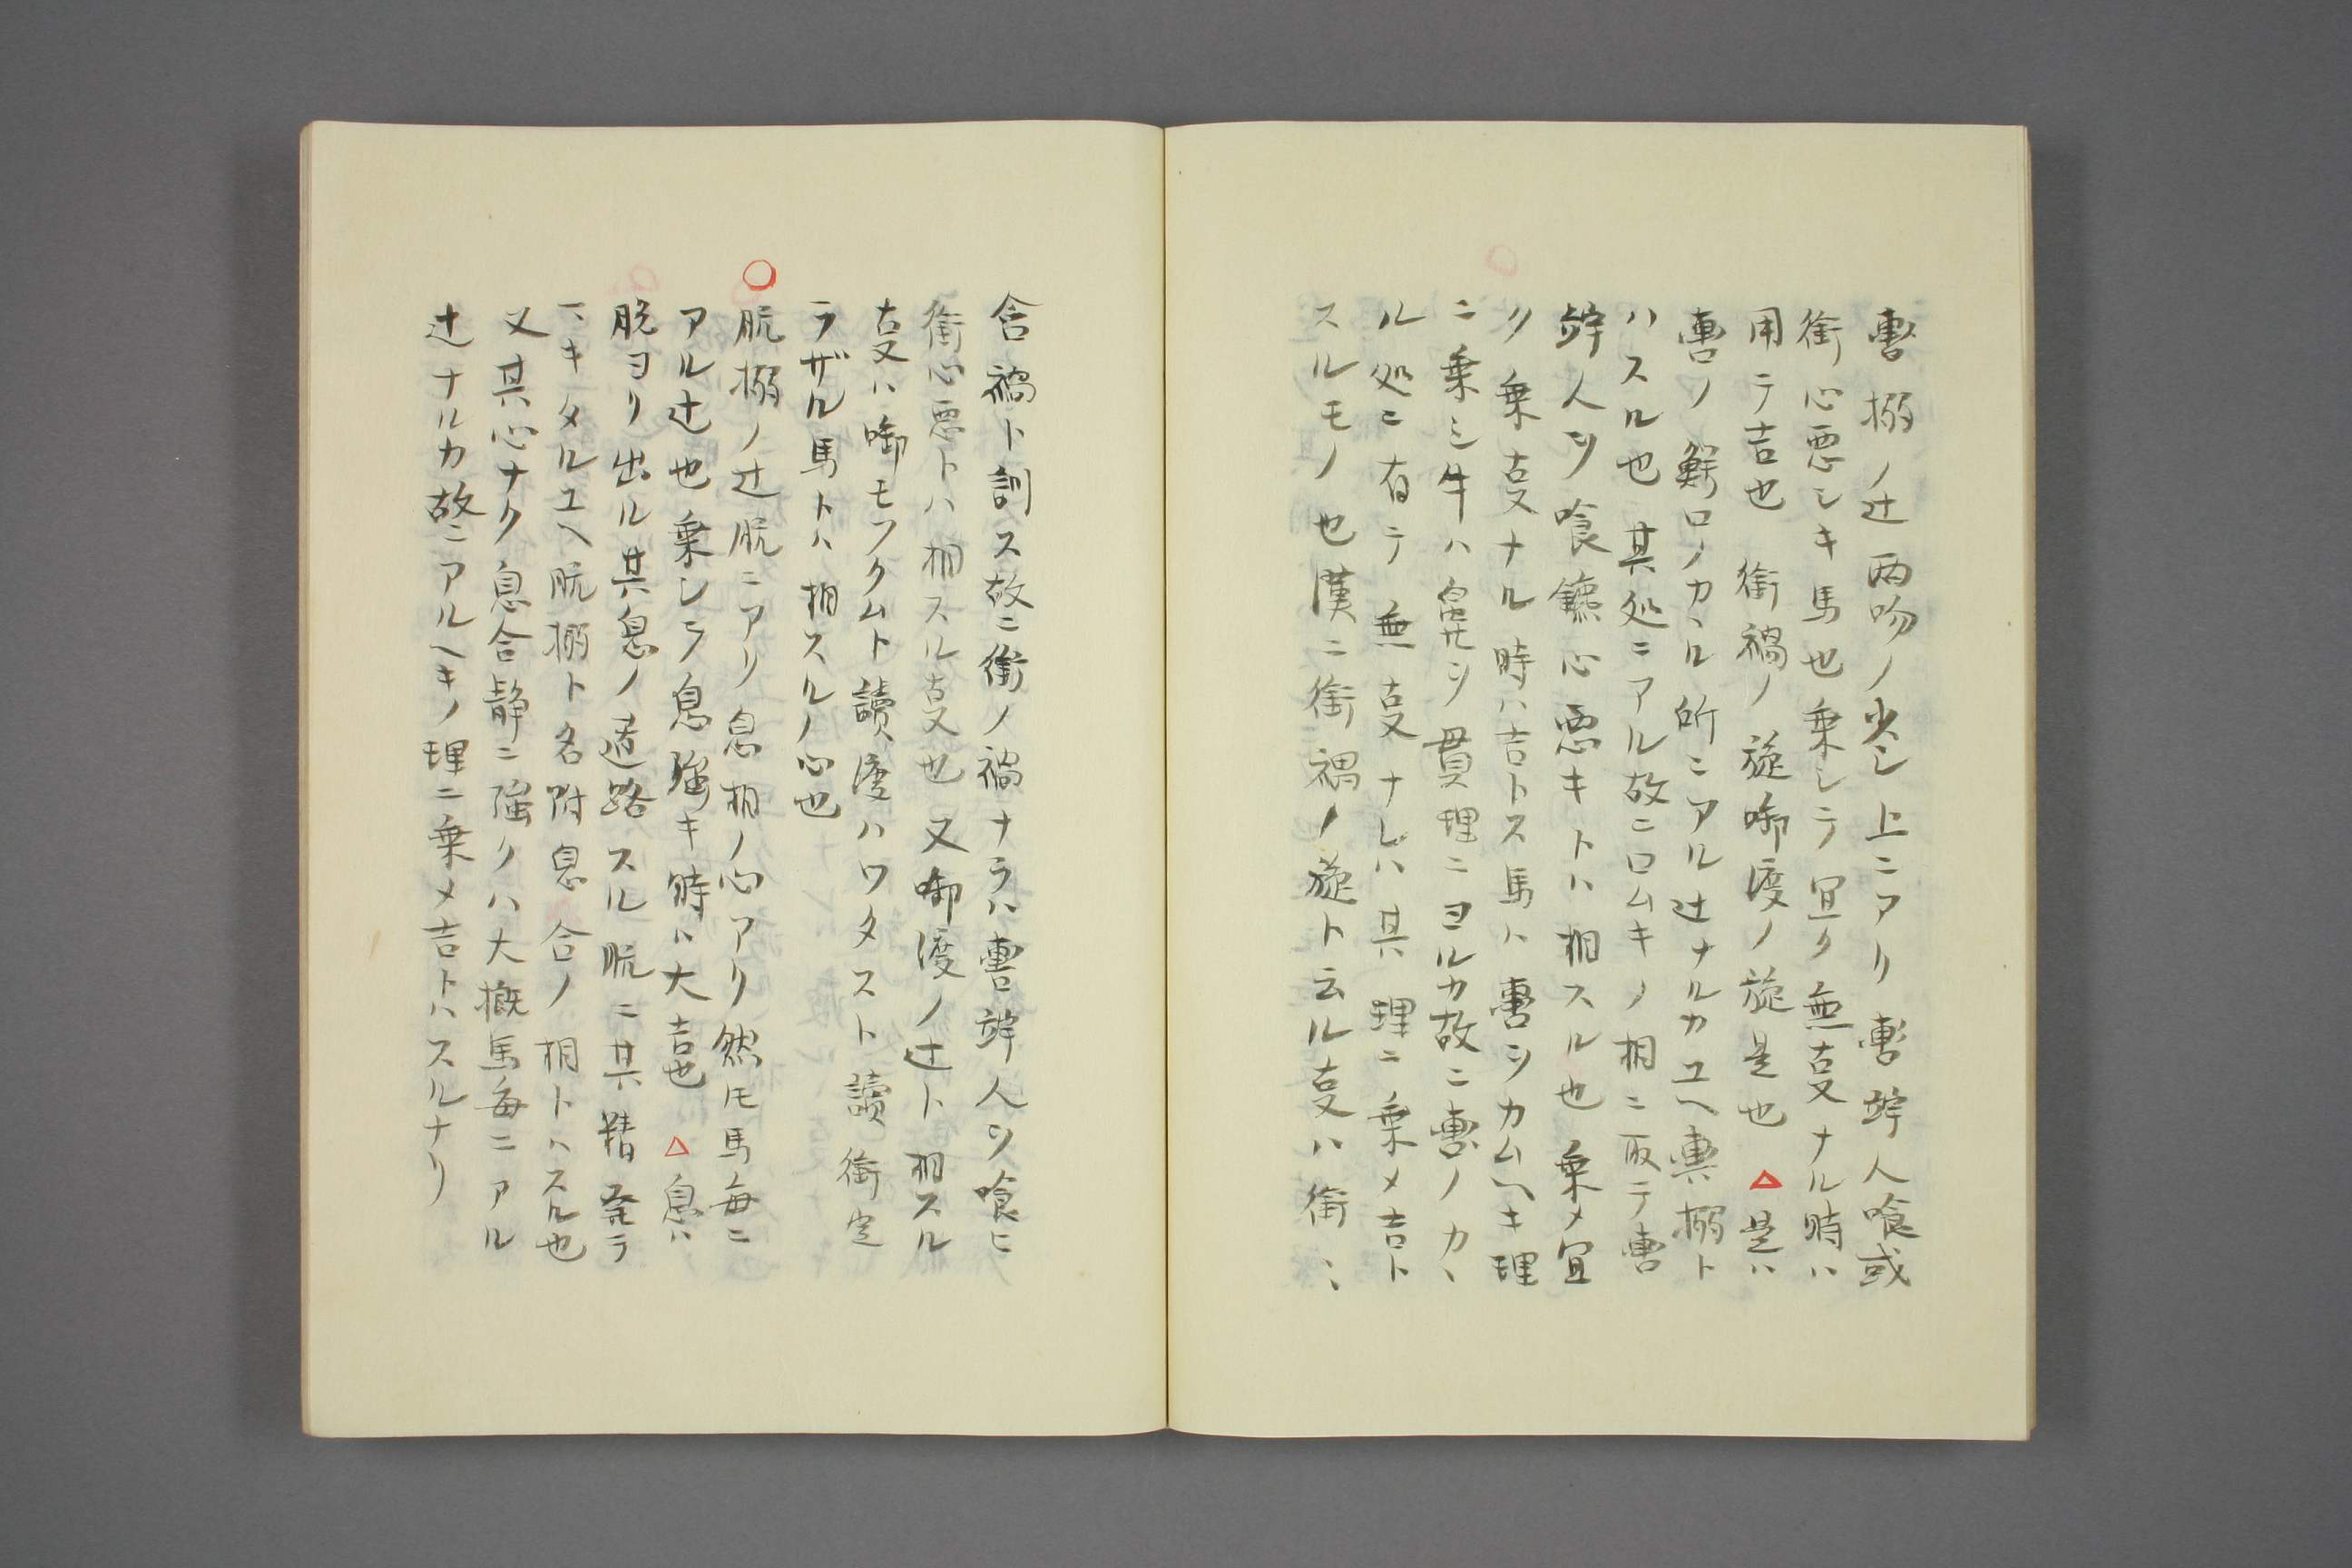 轡搦ノ辻両吻ノ少シ上ニアリ轡㘅人喰或
銜心悪シキ馬也乗シラ冝ク無叓ナル時ハ
用テ吉也 銜禍ノ旋啣渡ノ旋是也 △是ハ
轡ノ鮃口ノカヽル所ニアル辻ナルカユヘ轡搦ト
ハスル也其処ニアル故ニロムキノ相ニ取テ轡
人ヲ喰鑣心悪キトハ相スル也乗メ冝
ク乗叓ナル時ハ吉トス馬ハ轡ヲカムヘキ理
ニ乗シ牛ハ鼻ヲ貫理ニヨルカ故ニ轡ノカヽ
ル処ニ有テ無叓ナレハ其理ニ乗メ吉ト
スルモノ也漢ニ銜禍ノ旋ト云ル叓ハ銜ヽ
含禍ト訓ス故ニ銜ノ禍ナラハ轡人ヲ喰ヒ
銜心悪トハ相スル叓也又啣渡ノ辻ト相スル
叓ハ啣モフクムト讀渡ハワタスト讀銜定
ラザル馬トハ相スルノ心也
○脘搦ノ辻脘ニアリ息相ノ心アリ然ㇳモ馬毎ニ
アル辻也乗シラ息強キ時ハ大吉也 △息ハ
脱ヨリ出ル其息ノ道路スル脘ニ其精発ラ
ヘキタルユヘ脘搦ト名附息合ノ相トハスル也
又其心ナク息合静ニ強クハ大概馬毎ニアル
辻ナルカ故ニアルヘキノ理ニ乗メ吉トハスルナリ